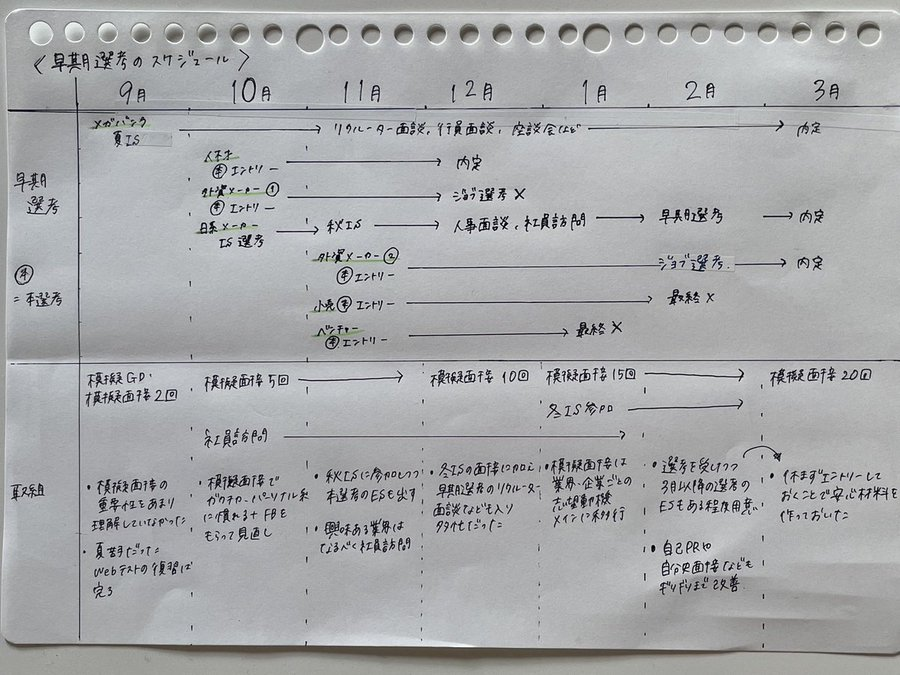 〈早期選考のスケジュール〉
9月 10月 11月 12月 1月 2月 3月
早期
選考
㊍
=本選考
メガバンク
夏IS
リクルーター面談、行員面談、座談会など
内定
人材
㊍エントリー
内定
外資メーカー①
㊍エントリー
ジョブ選考 ×
日系メーカー
IS選考
秋IS
人事面談、社員訪問
早期選考
内定
外資メーカー②
㊍エントリー
ジョブ選考
内定
小売㊍エントリー
最終 ×
ベンチャー
㊍エントリー
最終 ×
取組
模擬GD・
模擬面接2回
模擬面接5回
模擬面接10回
模擬面接15回
模擬面接20回
冬IS参加
社員訪問
・模擬面接の
重要性をあまり
理解していなかった
・夏苦手だった
Webテストの復習は
完了
・模擬面接で
ガクチカ・パーソナル系
に慣れる+FBを
もらって見直し
・秋ISに参加しつつ
本選考のESを出す
・興味ある業界は
なるべく社員訪問
・冬ISの面接に加え
早期選考のリクルーター
面談なども入り
多忙だった
・模擬面接は
業界・企業ごとの
志望動機
メインに移行
・選考を受けつつ
3月以降の選考の
ESもある程度用意
・自己PRや
自分史面接なども
ギリギリまで改善
・休まずエントリーして
おくことで安心材料を
作っておいた